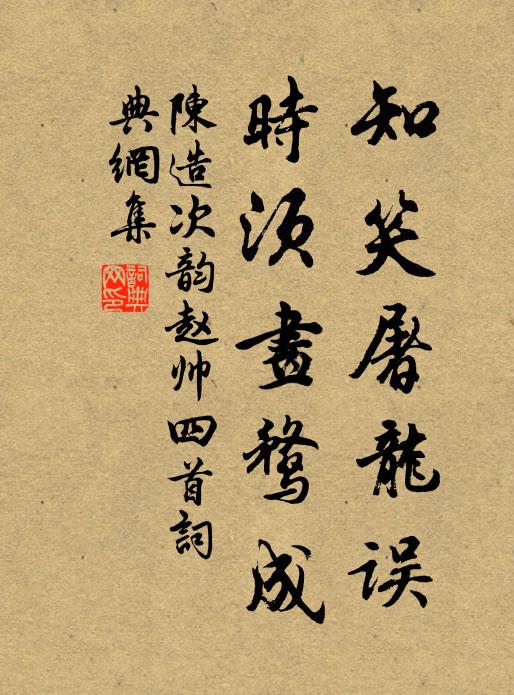 知笑屠龍误
時须畫鶩成
陳造次韵赵帅四首詞
典網集
詞典
网印